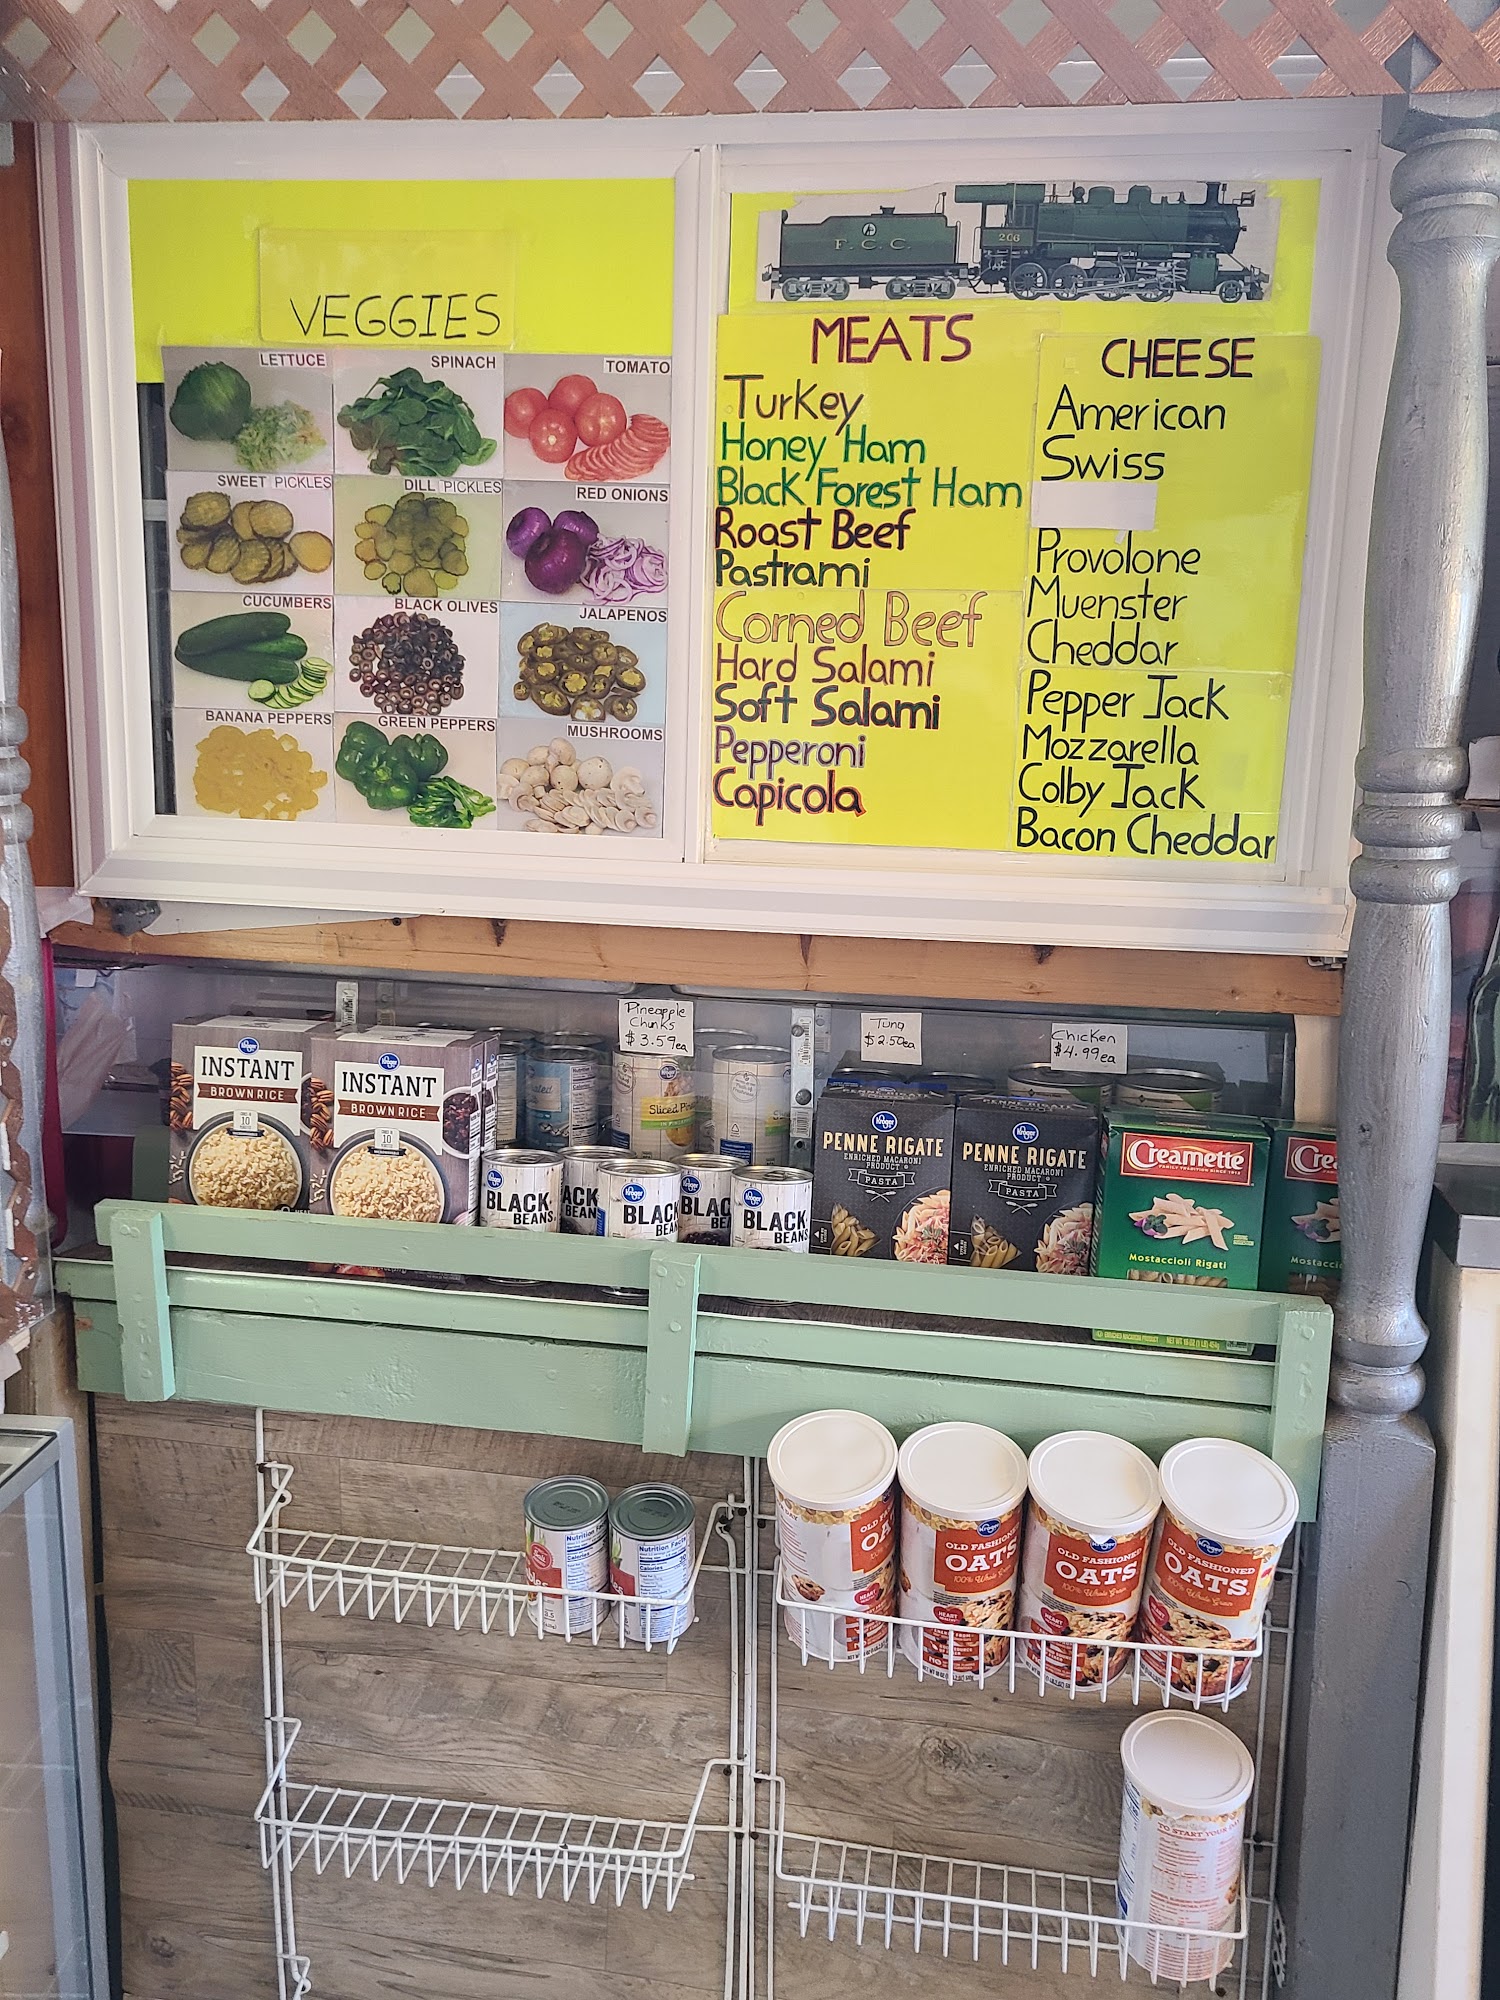 F. C. C.
206
VEGGIES
LETTUCE
SPINACH
TOMATO
SWEET PICKLES
DILL PICKLES
RED ONIONS
CUCUMBERS
BLACK OLIVES
JALAPENOS
BANANA PEPPERS
GREEN PEPPERS
MUSHROOMS
MEATS
Turkey
Honey Ham
Black Forest Ham
Roast Beef
Pastrami
Corned Beef
Hard Salami
Soft Salami
Pepperoni
Capicola
CHEESE
American
Swiss
Provolone
Muenster
Cheddar
Pepper Jack
Mozzarella
Colby Jack
Bacon Cheddar
Pineapple
Chunks
$3.59ea
Tuna
$2.50ea
Chicken
$4.99ea
Kroger
INSTANT
BROWN RICE
10
Kroger
INSTANT
BROWN RICE
10
Kroger
Sliced
Kroger
BLACK
BEANS
ACK
Kroger
BLACK
BEAN
Kroger
BLAC
BE
Kroger
BLACK
BEANS
Kroger
PENNE RIGATE
ENRICHED MACARONI
PRODUCT
PASTA
Kroger
PENNE RIGATE
ENRICHED MACARONI
PRODUCT
PASTA
Creamette
Mostaccioli Rigati
Cre
Mostaccioli
Nutrition Facts
Calories
Nutrition Facts
Calories
OLD FA
OA
HEART
Kroger
OLD FASHIONED
OATS
100% Whole Grain
HEART
Kroger
OLD FASHIONED
OATS
100% Whole Grain
HEART
Kroger
OLD FASHIONED
OATS
100% Whole Grain
HEART
TO START YOUR DAY